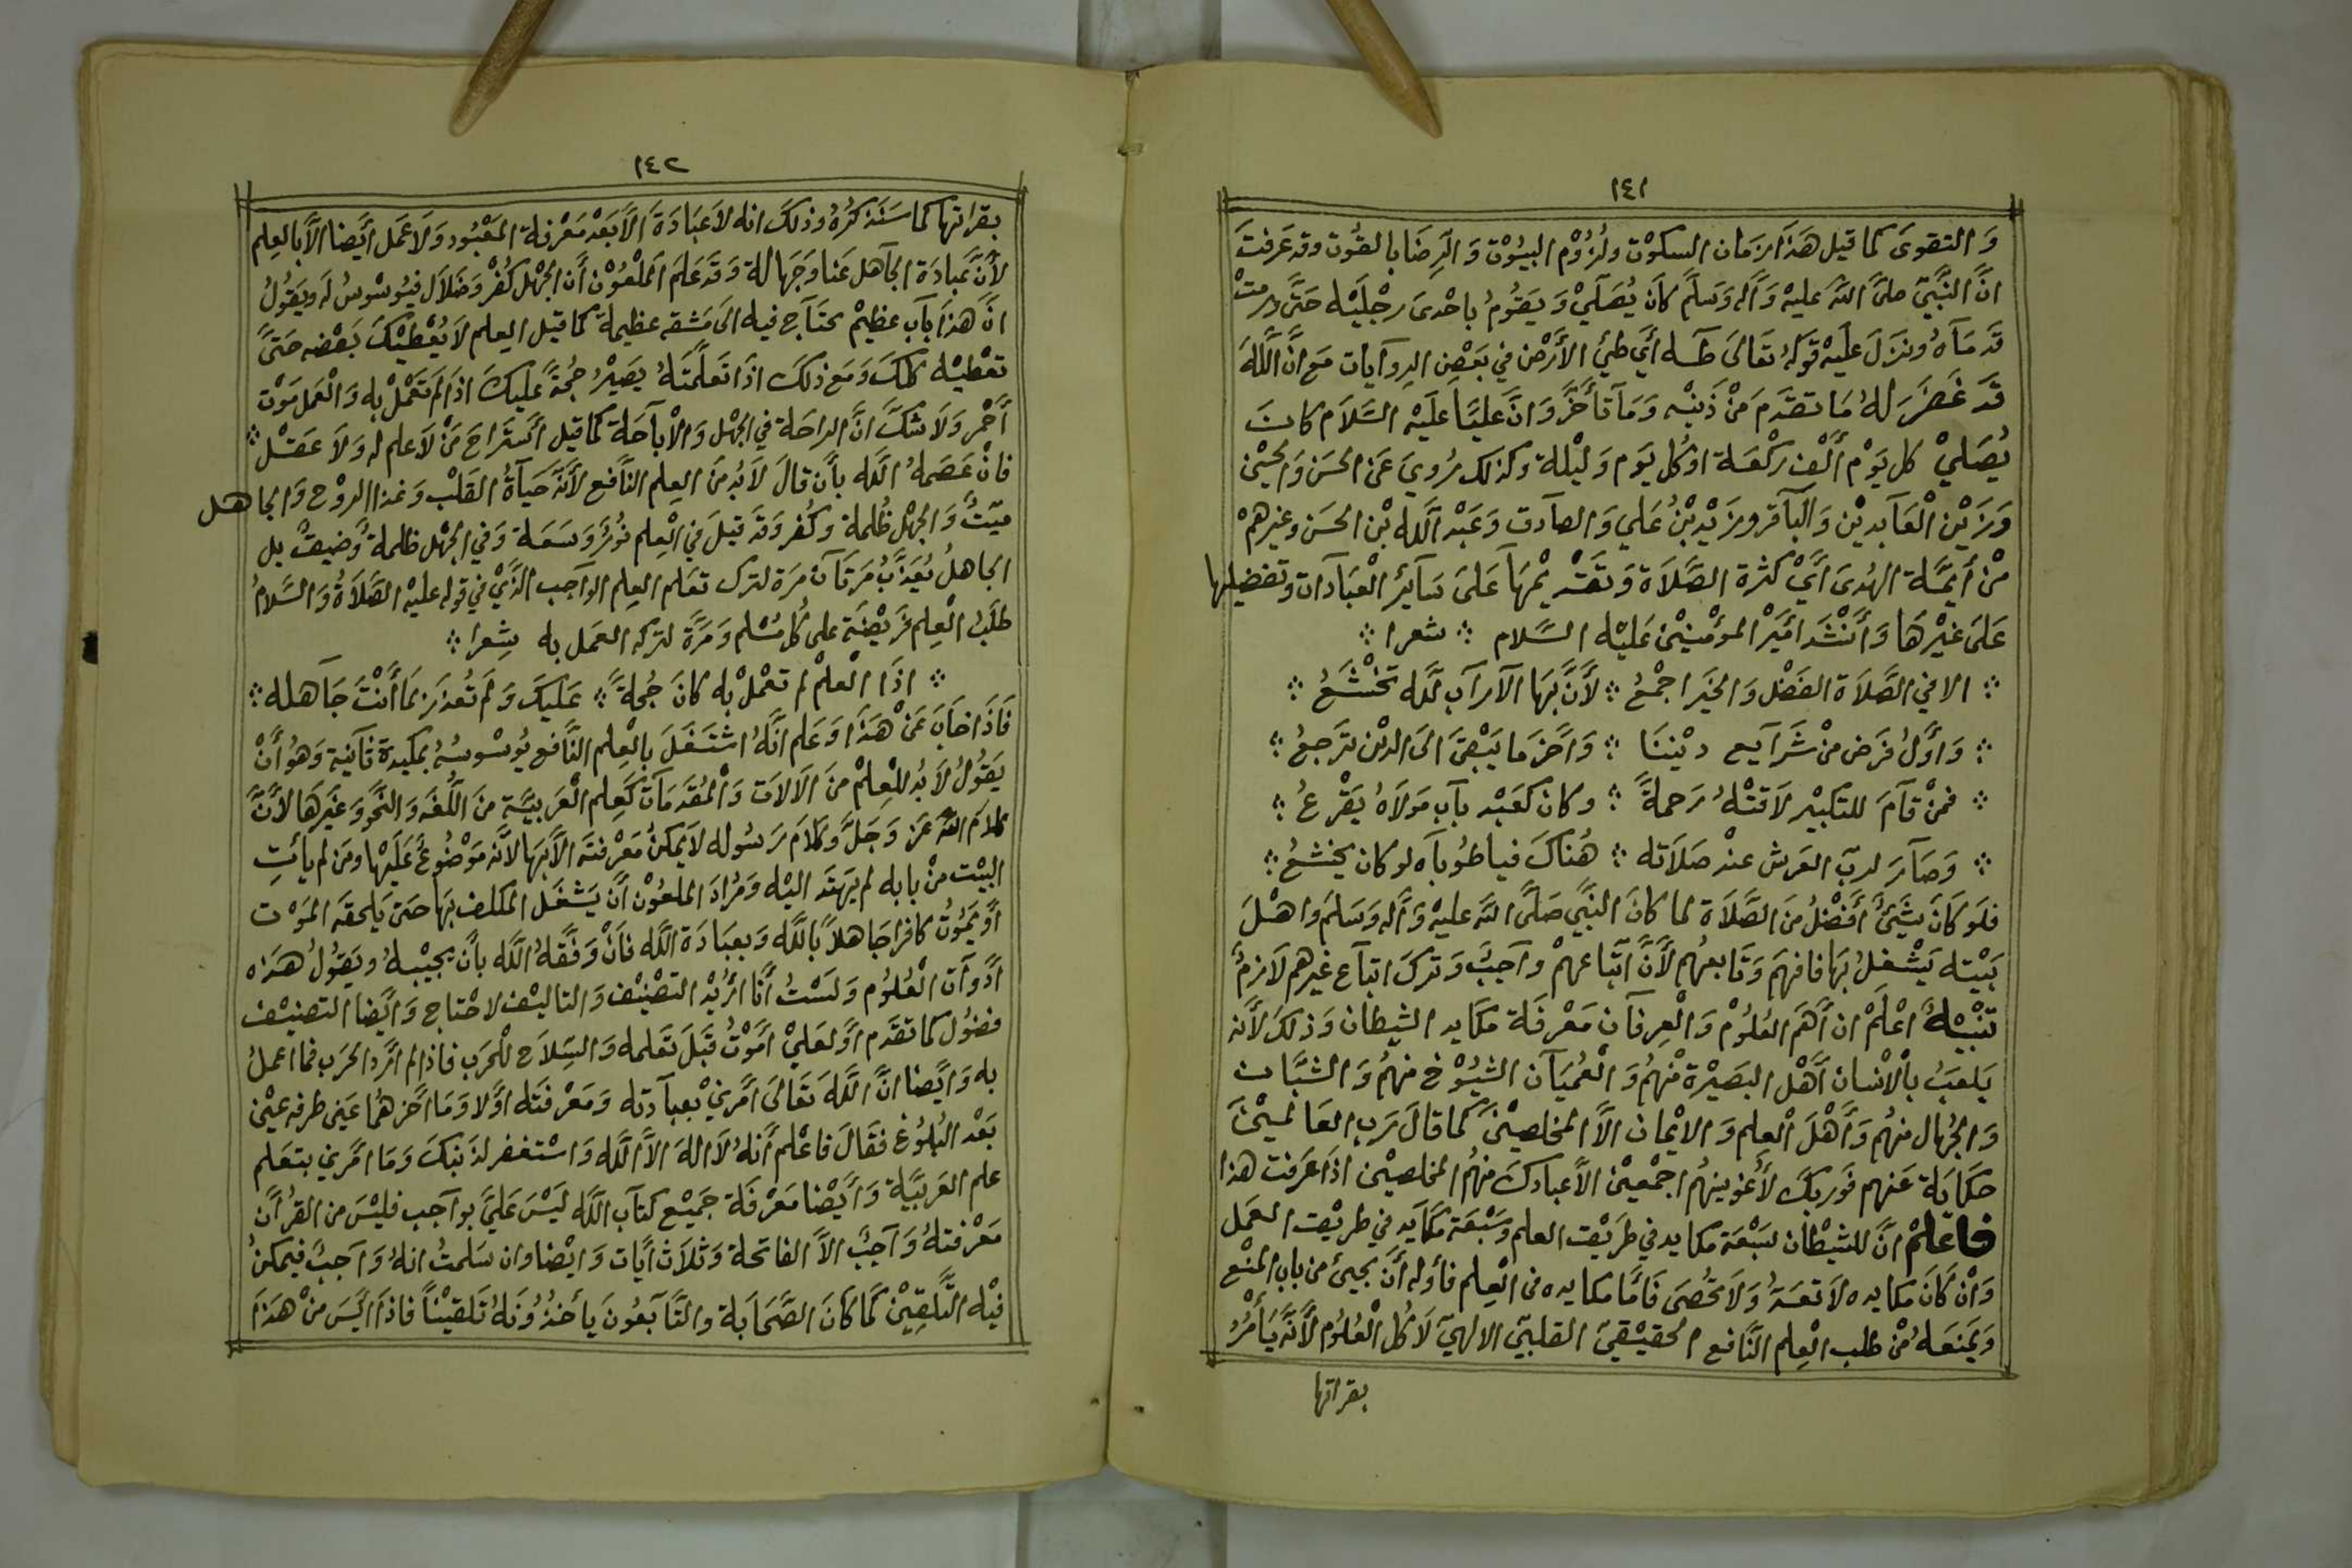 ١٤١
وَالتقوىَ كما قيل هَذَا زمَان السكوْت ولُزُوْم البيُوْت وَالرِضَا بالقُوْت وقد عَرفتَ
انَّ النَّبِيَّ صلىَّ اللّه عليْه وَآله وَسَلَّم كاَنَ يُصَلِّيْ وَيَقُوُمُ باحْدىَ رجْليَهْ حَتَّى ورمتْ
قَدَمَاهُ ونزلَ عَليَهْ قوَلهُ تعَالىَ طَـٰه أَيْ طَئِ الأَرْضَ في بعَضِ الروَايات مَع انَّ اللَّهَ
قَد غَفرَ لهُ مَا تقدّم مَنْ ذَنبْه وَمَا تأَخَّرَ وَانَّ عَليَّا عَليَهْ السَّلاَم كانَ
يُصَليْ كل يَوْم أَلْفَ رَكْعَـة اوْ كُل يَوم وَليْلة وكذلك رُويَ عَنِ الحسَن وَالحسَيْن
وَزَيْن الْعَابديْن وَالبَاقر وزَيْد بْنُ عَلي وَالصادق وَعَبْد اللَّه بْن الحسَن وغيْرهمْ
مْن أَيِمَّـة الهُدىَ أَيْ كثرة الصَّلاَة وَتقَدْيمْهَا عَلىَ سَآيِر الْعبَادات وتفضيلها
عَلىَ غيْرهَا وَأَنْشَد امَيْر المؤْمنيْنَ عَليْه السَّلام ؞ شعرا ؞
؞ الا في الصَّلاَة الفَضل وَالخيَر اجْمعُ ؞ لأَنَّ بهَا الآرَابَ للَّه تخْشَعُ ؞
؞ وَاوَّلُ فرَض منْ شَرَآيع ديْننَا ؞ وَآخر ما يَبْقىَ الىَ الديْن يَرجعُ ؞
؞ فمنْ قامَ للتكبيْر لاَقتْهُ رَحمةٌ ؞ وكان كعَبْد بآب مَولاَهُ يَقْرعُ ؞
؞ وَصَارَ لربّ العَرش عنْد صَلاَته ؞ هُنَاكَ فيا طُوبَاه لو كان يخشعُ ؞
فلَو كاَنَ شَيئٌ أَفضْلُ منَ الصَّلاَة لما كانَ النَّبيّ صَلىَّ اللّه عليْه وَآله وَسَلم وَاهْلَ
بَيْته يَشْغلُ بهَا فافهمَ وَتابعْهُم لأَنَّ اتّباعهُمْ وَاجبٌ وَتركَ اتباع غيرهم لاَزمٌ
تنبْيْهٌ اعْلَمْ ان أَهَمَ العُلوُمْ وَالْعِرفان مَعْرفَة مكَايد الشيطان وَذلكَ لأَنه
يَلعَبُ بالاْنسان أَهْل البَصيْرة منْهُم وَالْعُمْيَان الشيُوْخ منهُم وَالشبَّان
وَالجهُال منهُم وَأَهْلَ الْعِلم وَالايْمان الاَّ المخلصيْنَ كما قالَ رَب العَالميْنَ
حكَايَة عَنهم فوَربّك لأُغوينهُم اجْمَعيْن الاَّ عبادكَ منهُم المخلصيْن اذَا عَرَفت هذا
فاعْلمْ انَّ للشيْطان سَبْعَة مكايد في طَريْق العلم وَسَبْعَة مكَايد في طريْق العَمل
وَانْ كَانَ مكَايده لاَ تعَدُّ وَلاَ تحُصَى فَأَمّا مكايده في الْعِلم فأَوله أَنْ يجيئ من باب المنْع
وَيمنَعهُ منْ طلب الْعِلم النَّافع الحقيْقيّ القلبيّ الالهيّ لاَ كُل الْعُلوُم لأَنَّه يَأْمُرُ
بقراتها
١٤٢
بقراتها كما سَنذكُرُهُ وذلكَ انه لاَ عبَادَةَ الاَّ بَعْد مَعْرفة المَعْبُود وَلاَ عمَل أَيضا الاَّ بالعِلم
لأَنَّ عبادَة الجاهل عَنا وَجَهالة وَقَد عَلمَ الملْعُوْن أَن الجهْل كُفْر وَضَلاَل فيُوسْوسُ له ويَقوُلُ
انَّ هَذَا بَاب عظيْم يحتَاج فيه الىَ مَشقه عظيمة كما قيل العِلم لاَ يُعْطيْكَ بَعْضه حَتىَّ
تعْطيْه كلّكَ وَمَع ذلكَ اذَا تعَلَّمتَهُ يصَيْرُ حُجةً عليكَ اذَا لم تعَمْل به وَالْعَمل مَوْت
أَحْمر وَلاَ شكَّ انَّ الراحَة في الجهْل وَالاْباحَة كما قيل استَراحَ مَنْ لاَ علم له وَلاَ عَقـْل ؞
فانْ عَصَمهُ اللَّه بأَن قالَ لاَ بُد منَ العِلم النَّافع لأَنَّهُ حَيَاةُ القَلْب وَغذا الروْح وَالجاهـل
ميّتٌ وَالجهْل ظُلمة وكُفر وَقَد قيلَ في الْعِلم نُوْرٌ وَسَعَـة وَفي الجهْل ظلمةٌ وَضيقٌ بل
الجاهلُ يُعَذَّبُ مَرتَان مَرَة لترك تعَلم العِلم الوَاجب الَّذيْ في قوله عليْه الصَّلاَةُ وَالسَّلاَمُ
طلَبُ الْعِلم فَريْضَة على كُل مُسْلم وَمَرَّة لتركه العمَل به شِعرا ؞
؞ اذَا الْعلمْ لم تعْملْ به كانَ حُجةً ؞ عَليكَ وَلم تُعذرَ بما أَنْتَ جَاهله ؞
فَاذَا خابَ عَنْ هَذَا وَعَلم انَّهُ اشْتَغَلَ بالْعِلم النَّافع يُوسْوسُهُ بمكيدة ثانيَة وَهوُ أَنْ
يَقوُلُ لاَ بُد للْعِلمْ منَ الالات وَالمُقَدمات كَعِلم الْعَربيَّة منَ اللُّغة وَالنَّحو وَغيرَهَا لأَنَّ
كلاَم اللّه عَز وَجَلَّ وكلاَم رَسُوله لاَ يمكنُ مَعْرفتَه الاَّ بهَا لأَنَّه مَوْضُوعٌ عَليَهْا ومَن لم يأْتِ
البيْت منْ بابه لم يهَتد اليْه وَمُرادَ الملعُوْن أَنْ يَشغَل المكلف بهَا حَتىَ يَلحقَه المَوْت
أَو يَمُوْتُ كافرا جَاهلاً باللَّه وَبعبَادَة اللَّه فَانْ وَفقهُ اللَّه بأَن يجيْبهُ ويَقوُلُ هَذه
أَدوَات الْعُلوُم وَلَسْتُ أَنا اُريْد التصْنيْف وَالتاليْف لاحْتاج وَايَضا التصنيْف
فضوُل كما تقدّم أَو لعَليْ امُوْتُ قبَلَ تعَلمه وَالسِلاح للْحَرب فاذا لم ارُد الحَرب فما اعملُ
به وَايَضا انَّ اللَّه تعَالىَ أَمَرنيْ بعبادته وَمَعْرفتَه أَوَّلا وَمَا اخَّرهُما عَنى طرفة عيْن
بعْد البُلوُغ فقَالَ فاعْلم أَنهُ لاَ الهَ الاَّ اللَّه وَاسْتغفر لذَنبكَ وَمَا امَرني بتعَلم
علم العَربيَّة وَايَضْا مَعْرفَة جَميْع كتاب اللَّه لَيْسَ عَليَّ بوَاجب فليْسَ من القُرْآن
مَعْرفتهُ وَاجبٌ الاَّ الفاتحة وَثلاَث ايَات وَايْضا وان سَلمتُ انهُ وَاجبٌ فيمكنُ
فيْه التَّلقيْن كَما كانَ الصَّحابَة والتَّابعُونَ يأخذُوْنهُ تَلقيْناً فاذا ايَسَ منْ هَذَا